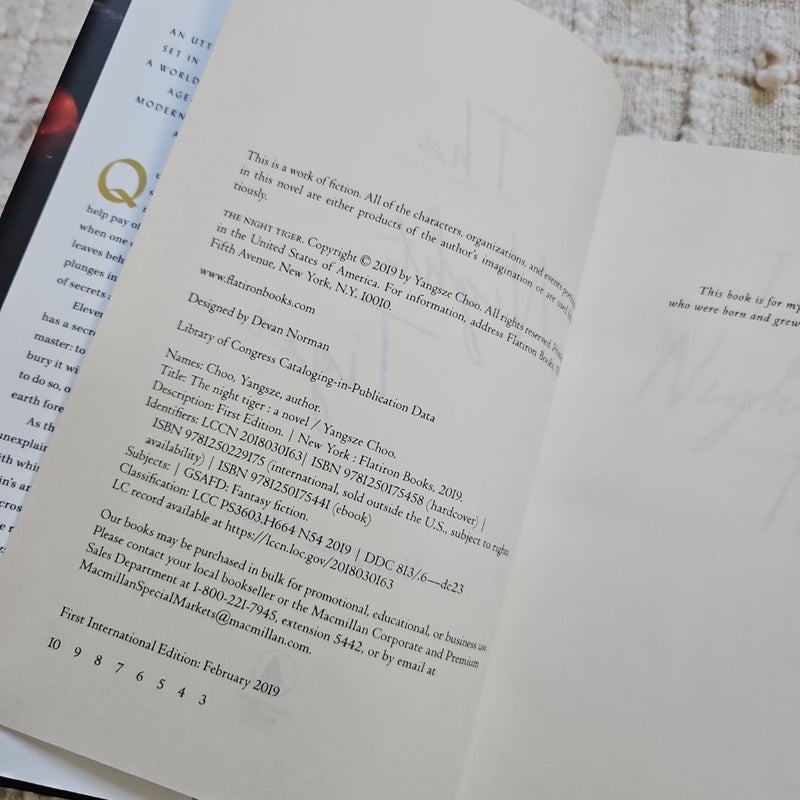 AN UTT
SET IN
A WORLD
AGE
MODERN
A
Q
help pay of
when one
leaves beh
plunges in
of secrets
Eleve
has a secre
master: to
bury it wi
to do so, o
earth fore
As th
unexplain
ith whi
n's ar
cros
The
Night
Tig
This is a work of fiction. All of the characters, organizations, and events
in this novel are either products of the author's imagination or are used
tiously.
THE NIGHT TIGER. Copyright © 2019 by Yangsze Choo. All rights reserved.
in the United States of America. For information, address Flatiron Books,
Fifth Avenue, New York, N.Y. 10010.
www.flatironbooks.com
Designed by Devan Norman
Library of Congress Cataloging-in-Publication Data
Names: Choo, Yangsze, author.
Title: The night tiger : a novel / Yangsze Choo.
Description: First Edition. | New York : Flatiron Books, 2019.
Identifiers: LCCN 2018030163| ISBN 9781250175458 (hardcover) |
ISBN 9781250229175 (international, sold outside the U.S., subject to rights
availability) | ISBN 9781250175441 (ebook)
Subjects: | GSAFD: Fantasy fiction.
Classification: LCC PS3603.H664 N54 2019 | DDC 813/.6—dc23
LC record available at https://lccn.loc.gov/2018030163
Our books may be purchased in bulk for promotional, educational, or business use.
Please contact your local bookseller or the Macmillan Corporate and Premium
Sales Department at 1-800-221-7945, extension 5442, or by email at
MacmillanSpecialMarkets@macmillan.com.
First International Edition: February 2019
10 9 8 7 6 5 4 3
This book is for my
who were born and grew
Nigh